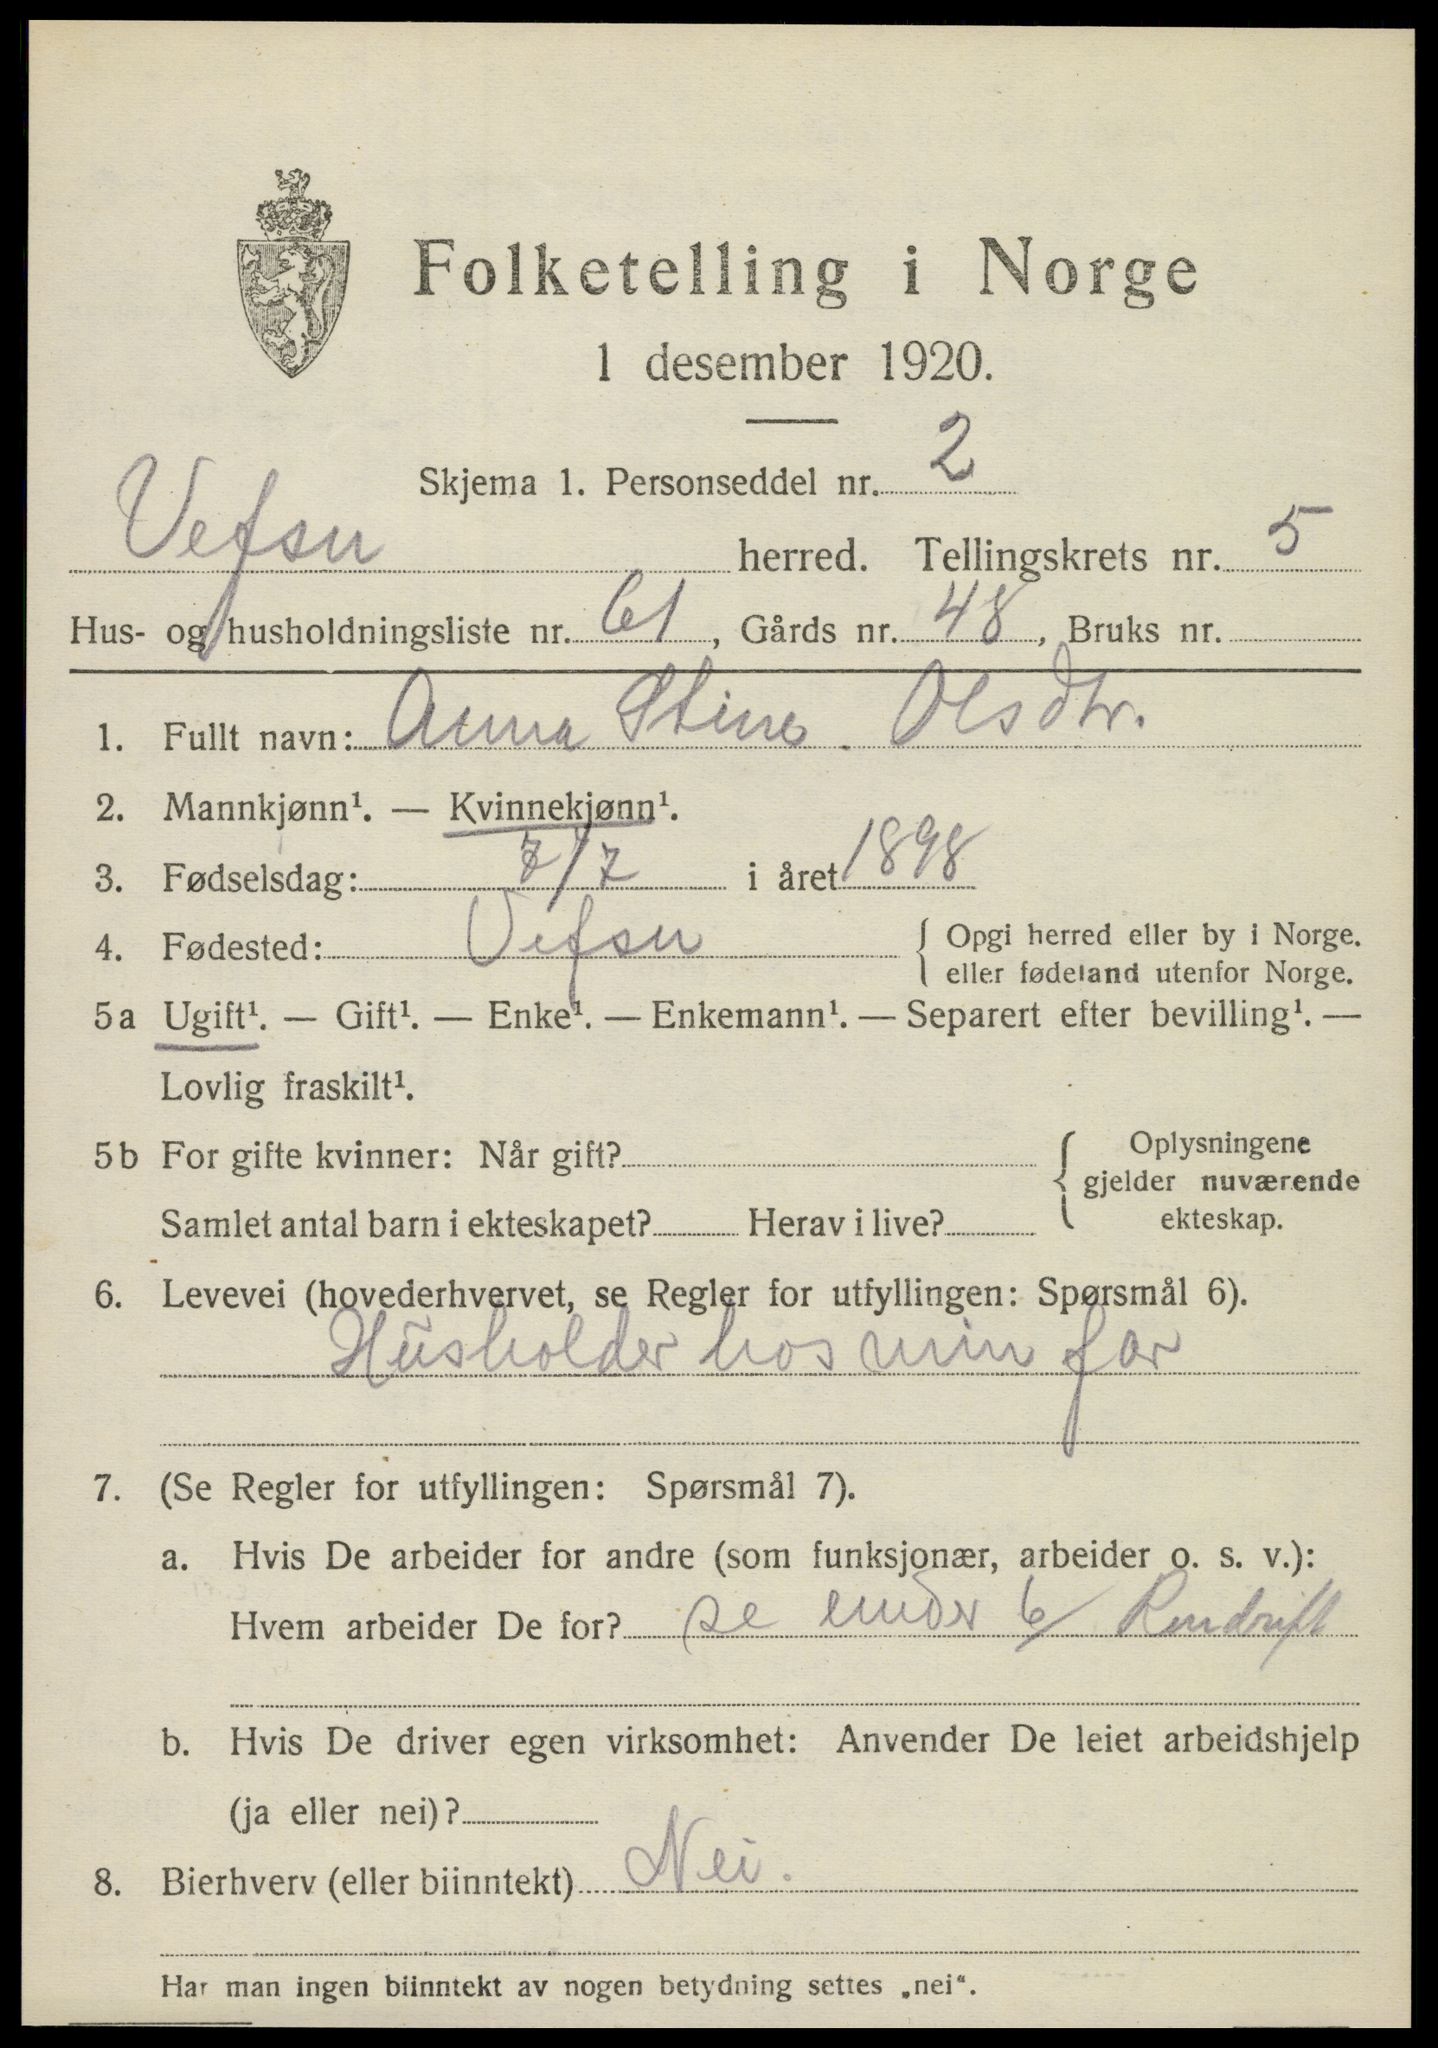 Folketelling i Norge
1 desember 1920.
Skjema 1. Personseddel nr. 2
Vefsn herred. Tellingskrets nr. 5
Hus- og husholdningsliste nr. 61, Gårds nr. 48, Bruks nr.
1. Fullt navn: Anna Stina Olsdtr.
2. Mannkjønn¹. — Kvinnekjønn¹.
3. Fødselsdag: 7/7 i året 1898
4. Fødested: Vefsn { Opgi herred eller by i Norge.
eller fødeland utenfor Norge.
5a Ugift¹. — Gift¹. — Enke¹. — Enkemann¹. — Separert efter bevilling¹. —
Lovlig fraskilt¹.
5b For gifte kvinner: Når gift? { Oplysningene
gjelder nuværende
Samlet antal barn i ekteskapet? Herav i live? ekteskap.
6. Levevei (hovederhvervet, se Regler for utfyllingen: Spørsmål 6).
Husholder hos min far
7. (Se Regler for utfyllingen: Spørsmål 7).
a. Hvis De arbeider for andre (som funksjonær, arbeider o. s. v.):
Hvem arbeider De for? se under 6/ Rendrift
b. Hvis De driver egen virksomhet: Anvender De leiet arbeidshjelp
(ja eller nei)?
8. Bierhverv (eller biinntekt) Nei.
Har man ingen biinntekt av nogen betydning settes „nei“.